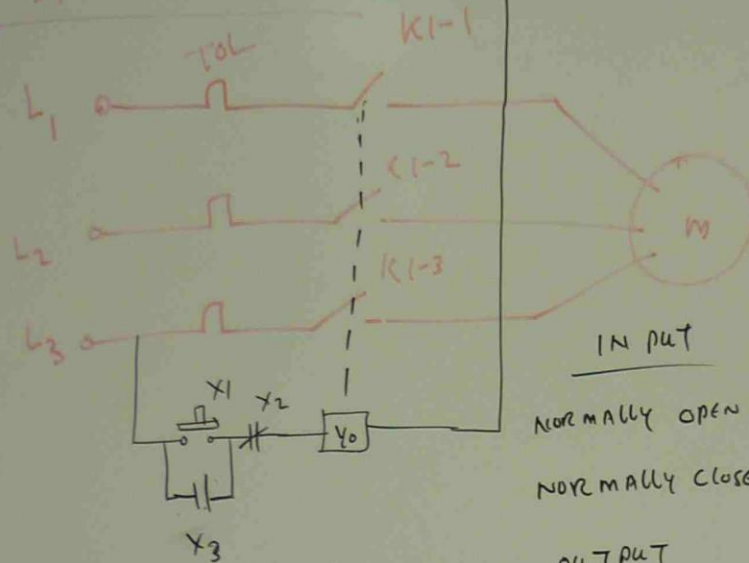 K1-1
TOL
L1
K1-2
L2
M
K1-3
L3
INPUT
X1
X2
NORMALLY OPEN
Y0
NORMALLY CLOSE
X3
OUTPUT